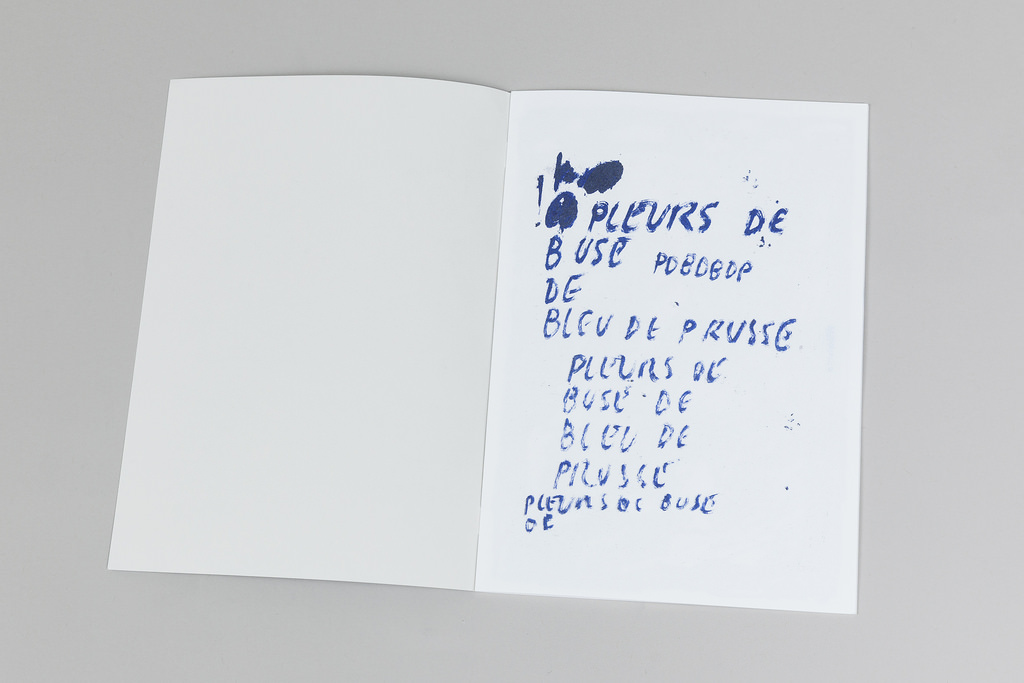 ! PLEURS DE
BUSE
DE
BLEU DE PRUSSE
PLEURS DE
BUSE DE
BLEU DE
PRUSSE
PLEURS DE BUSE
DE